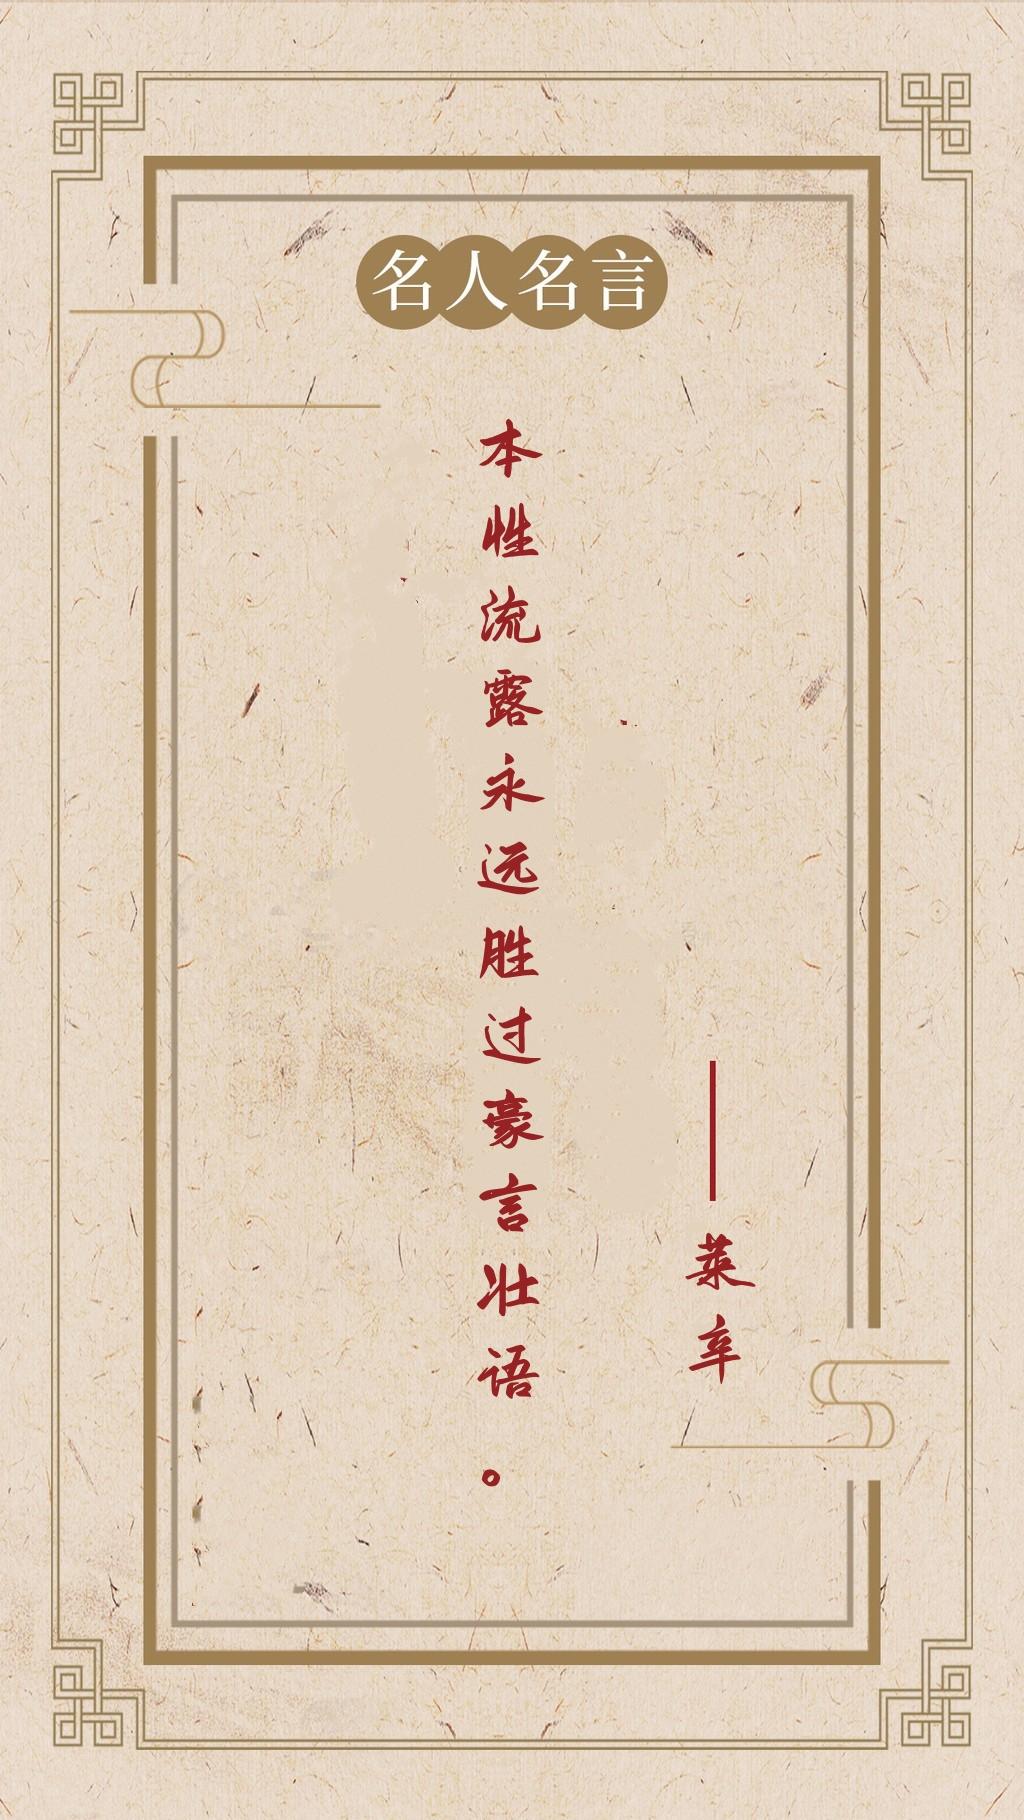 名人名言
本性流露永远胜过豪言壮语。
——莱辛